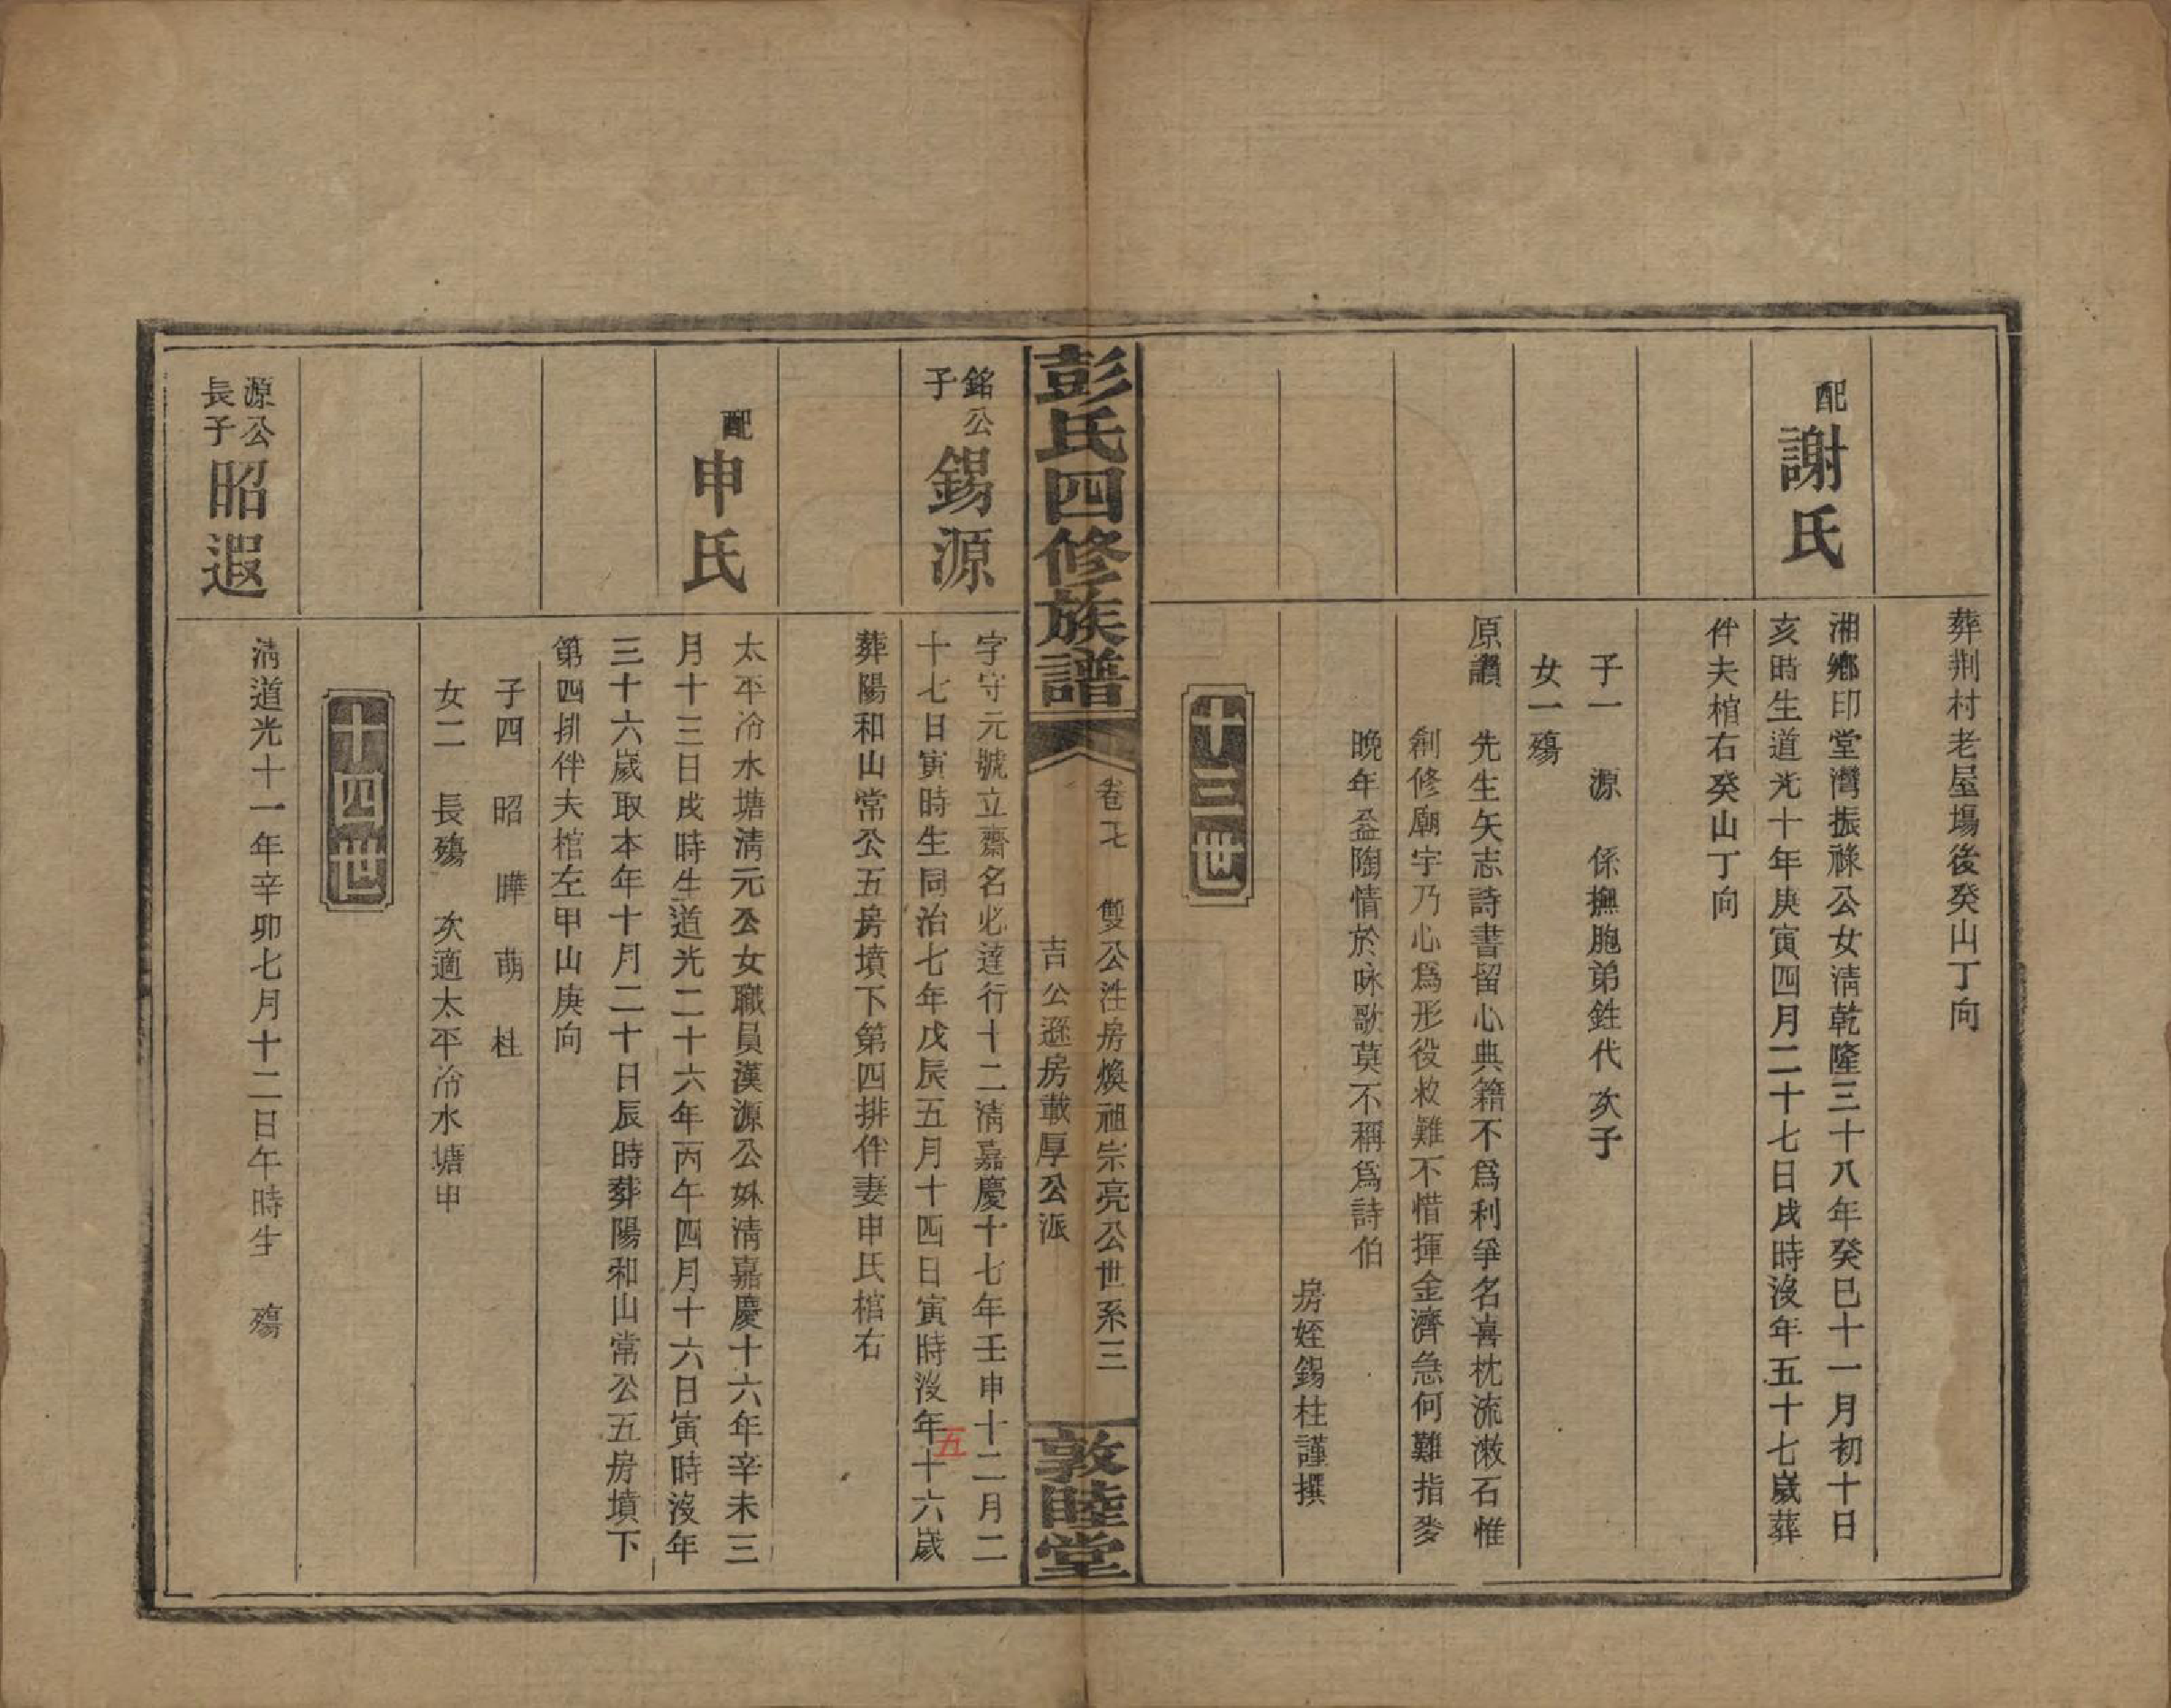 葬荆村老屋場後癸山丁向
配謝氏
湘鄉印堂灣振祿公女淸乾隆三十八年癸巳十一月初十日
亥時生道光十年庚寅四月二十七日戌時沒年五十七歲葬
伴夫棺右癸山丁向
子一 源 係撫胞弟銋代次子
女一殤
原讚 先生矢志詩書留心典籍不爲利爭名喜枕流漱石惟
創修廟宇乃心爲形役救難不惜揮金濟急何難指麥
晚年益陶情於咏歌莫不稱爲詩伯
房姪錫柱謹撰
十三世
彭氏四修族譜
卷
雙公泩房煥祖宗亮公世系三
吉公遜房載厚公派
敦睦堂
銘公
子
錫源
字守元號立齋名必達行十二淸嘉慶十七年壬申十二月二
十七日寅時生同治七年戊辰五月十四日寅時沒年十六歲
五
葬陽和山常公五房墳下第四排伴妻申氏棺右
配申氏
太平冷水塘淸元公女職員漢源公姊淸嘉慶十六年辛未三
月十三日戌時生道光二十六年丙午四月十六日寅時沒年
三十六歲取本年十月二十日辰時葬陽和山常公五房墳下
第四排伴夫棺左甲山庚向
子四 昭 曄 萌 桂
女二 長殤 次適太平冷水塘申
十四世
源公
長子
昭遐
淸道光十一年辛卯七月十二日午時生 殤